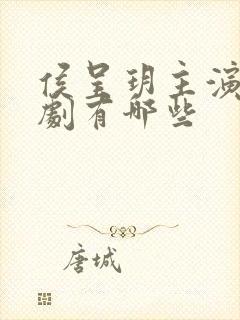 侯呈玥主演
劇有哪些
唐城